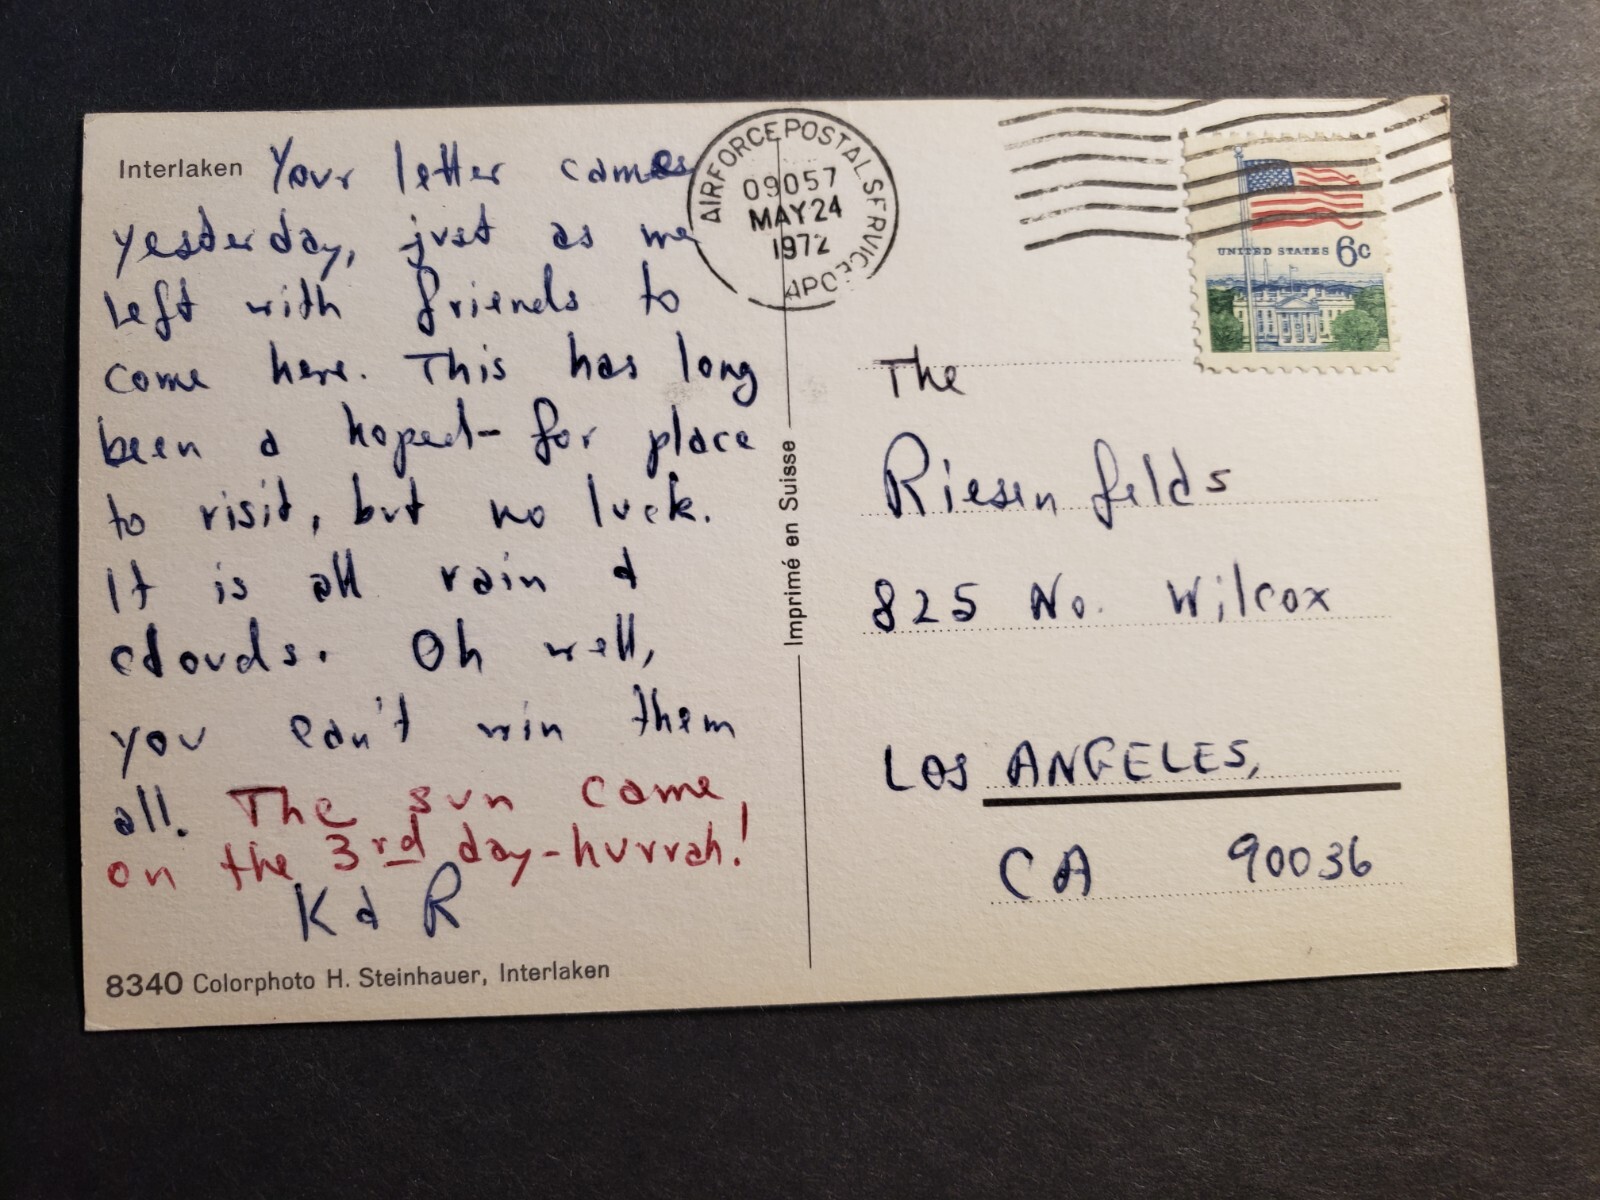 Interlaken Your letter came
yesterday, just as we
left with friends to
come here. This has long
been a hoped-for place
to visit, but no luck.
It is all rain &
clouds. Oh well,
you can't win them
all. The sun came,
on the 3rd day-hurrah!
K & R
8340 Colorphoto H. Steinhauer, Interlaken
Imprimé en Suisse
AIR FORCE POSTAL SERVICE
09057
MAY 24
1972
APO
UNITED STATES 6c
The
Riesenfelds
825 No. Wilcox
LOS ANGELES,
CA 90036